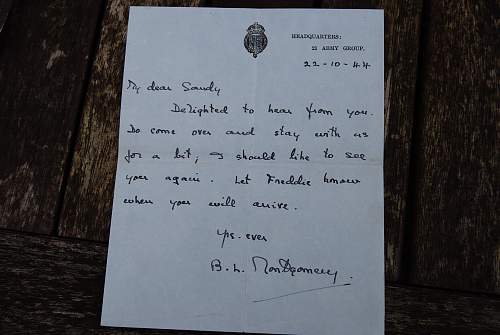 HEADQUARTERS:
21 ARMY GROUP.
22-10-44
My dear Sandy
Delighted to hear from you.
Do come over and stay with us
for a bit; I should like to see
you again. Let Freddie know
when you will arrive.
Yrs. ever
B. L. Montgomery.